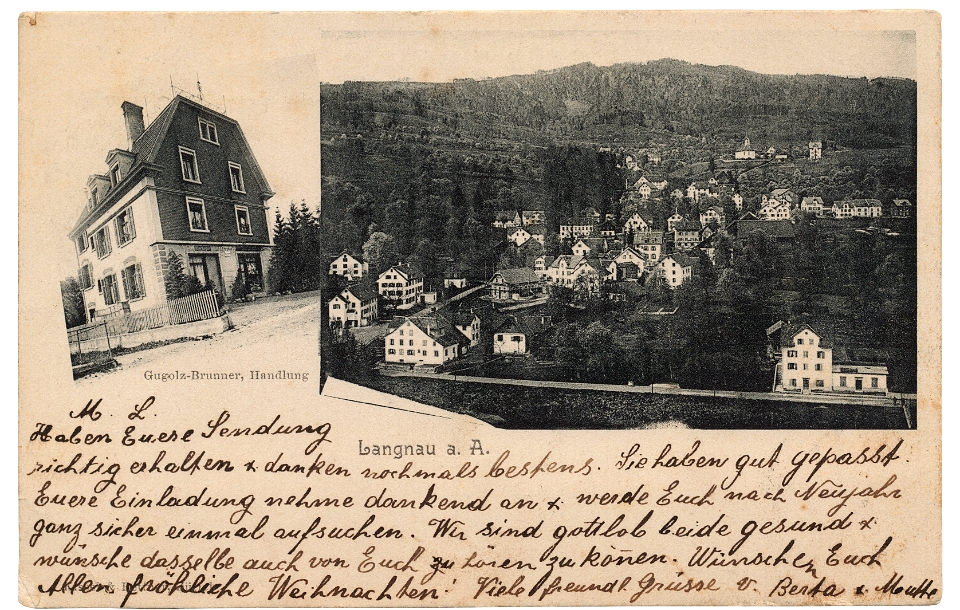 Gugolz-Brunner, Handlung
Langnau a. A.
M. L.
Haben Euere Sendung
richtig erhalten & danken nochmals bestens. Sie haben gut gepasst.
Euere Einladung nehme dankend an & werde Euch nach Neujahr
ganz sicher einmal aufsuchen. Wir sind gottlob beide gesund &
wünsche dasselbe auch von Euch zu hören zu kön̄en. Wünsche Euch
Allen fröhliche Weihnachten! Viele freundl Grüsse v. Berta &